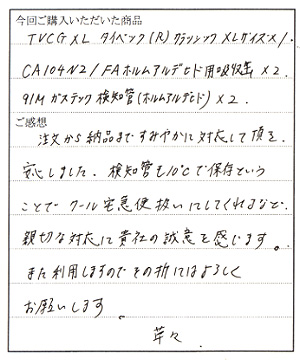 今回ご購入いただいた商品
TVCG XL タイベック(R)クラシック XLサイズ×1.
CA104N2/FAホルムアルデヒド用吸収缶×2.
91M ガステック 検知管(ホルムアルデヒド)×2.
ご感想
注文から納品まですみやかに対応して頂き.
安心しました。検知管も10℃で保存という
ことで クール宅急便扱いにしてくれるなど.
親切な対応に貴社の誠意を感じます。
また利用しますのでその折にはよろしく
お願いします。
草々